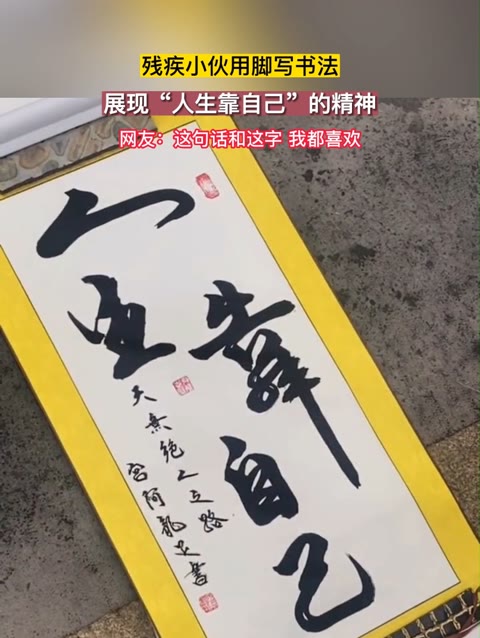 残疾小伙用脚写书法
展现“人生靠自己”的精神
网友：这句话和这字 我都喜欢
人生
靠自己
天无绝人之路